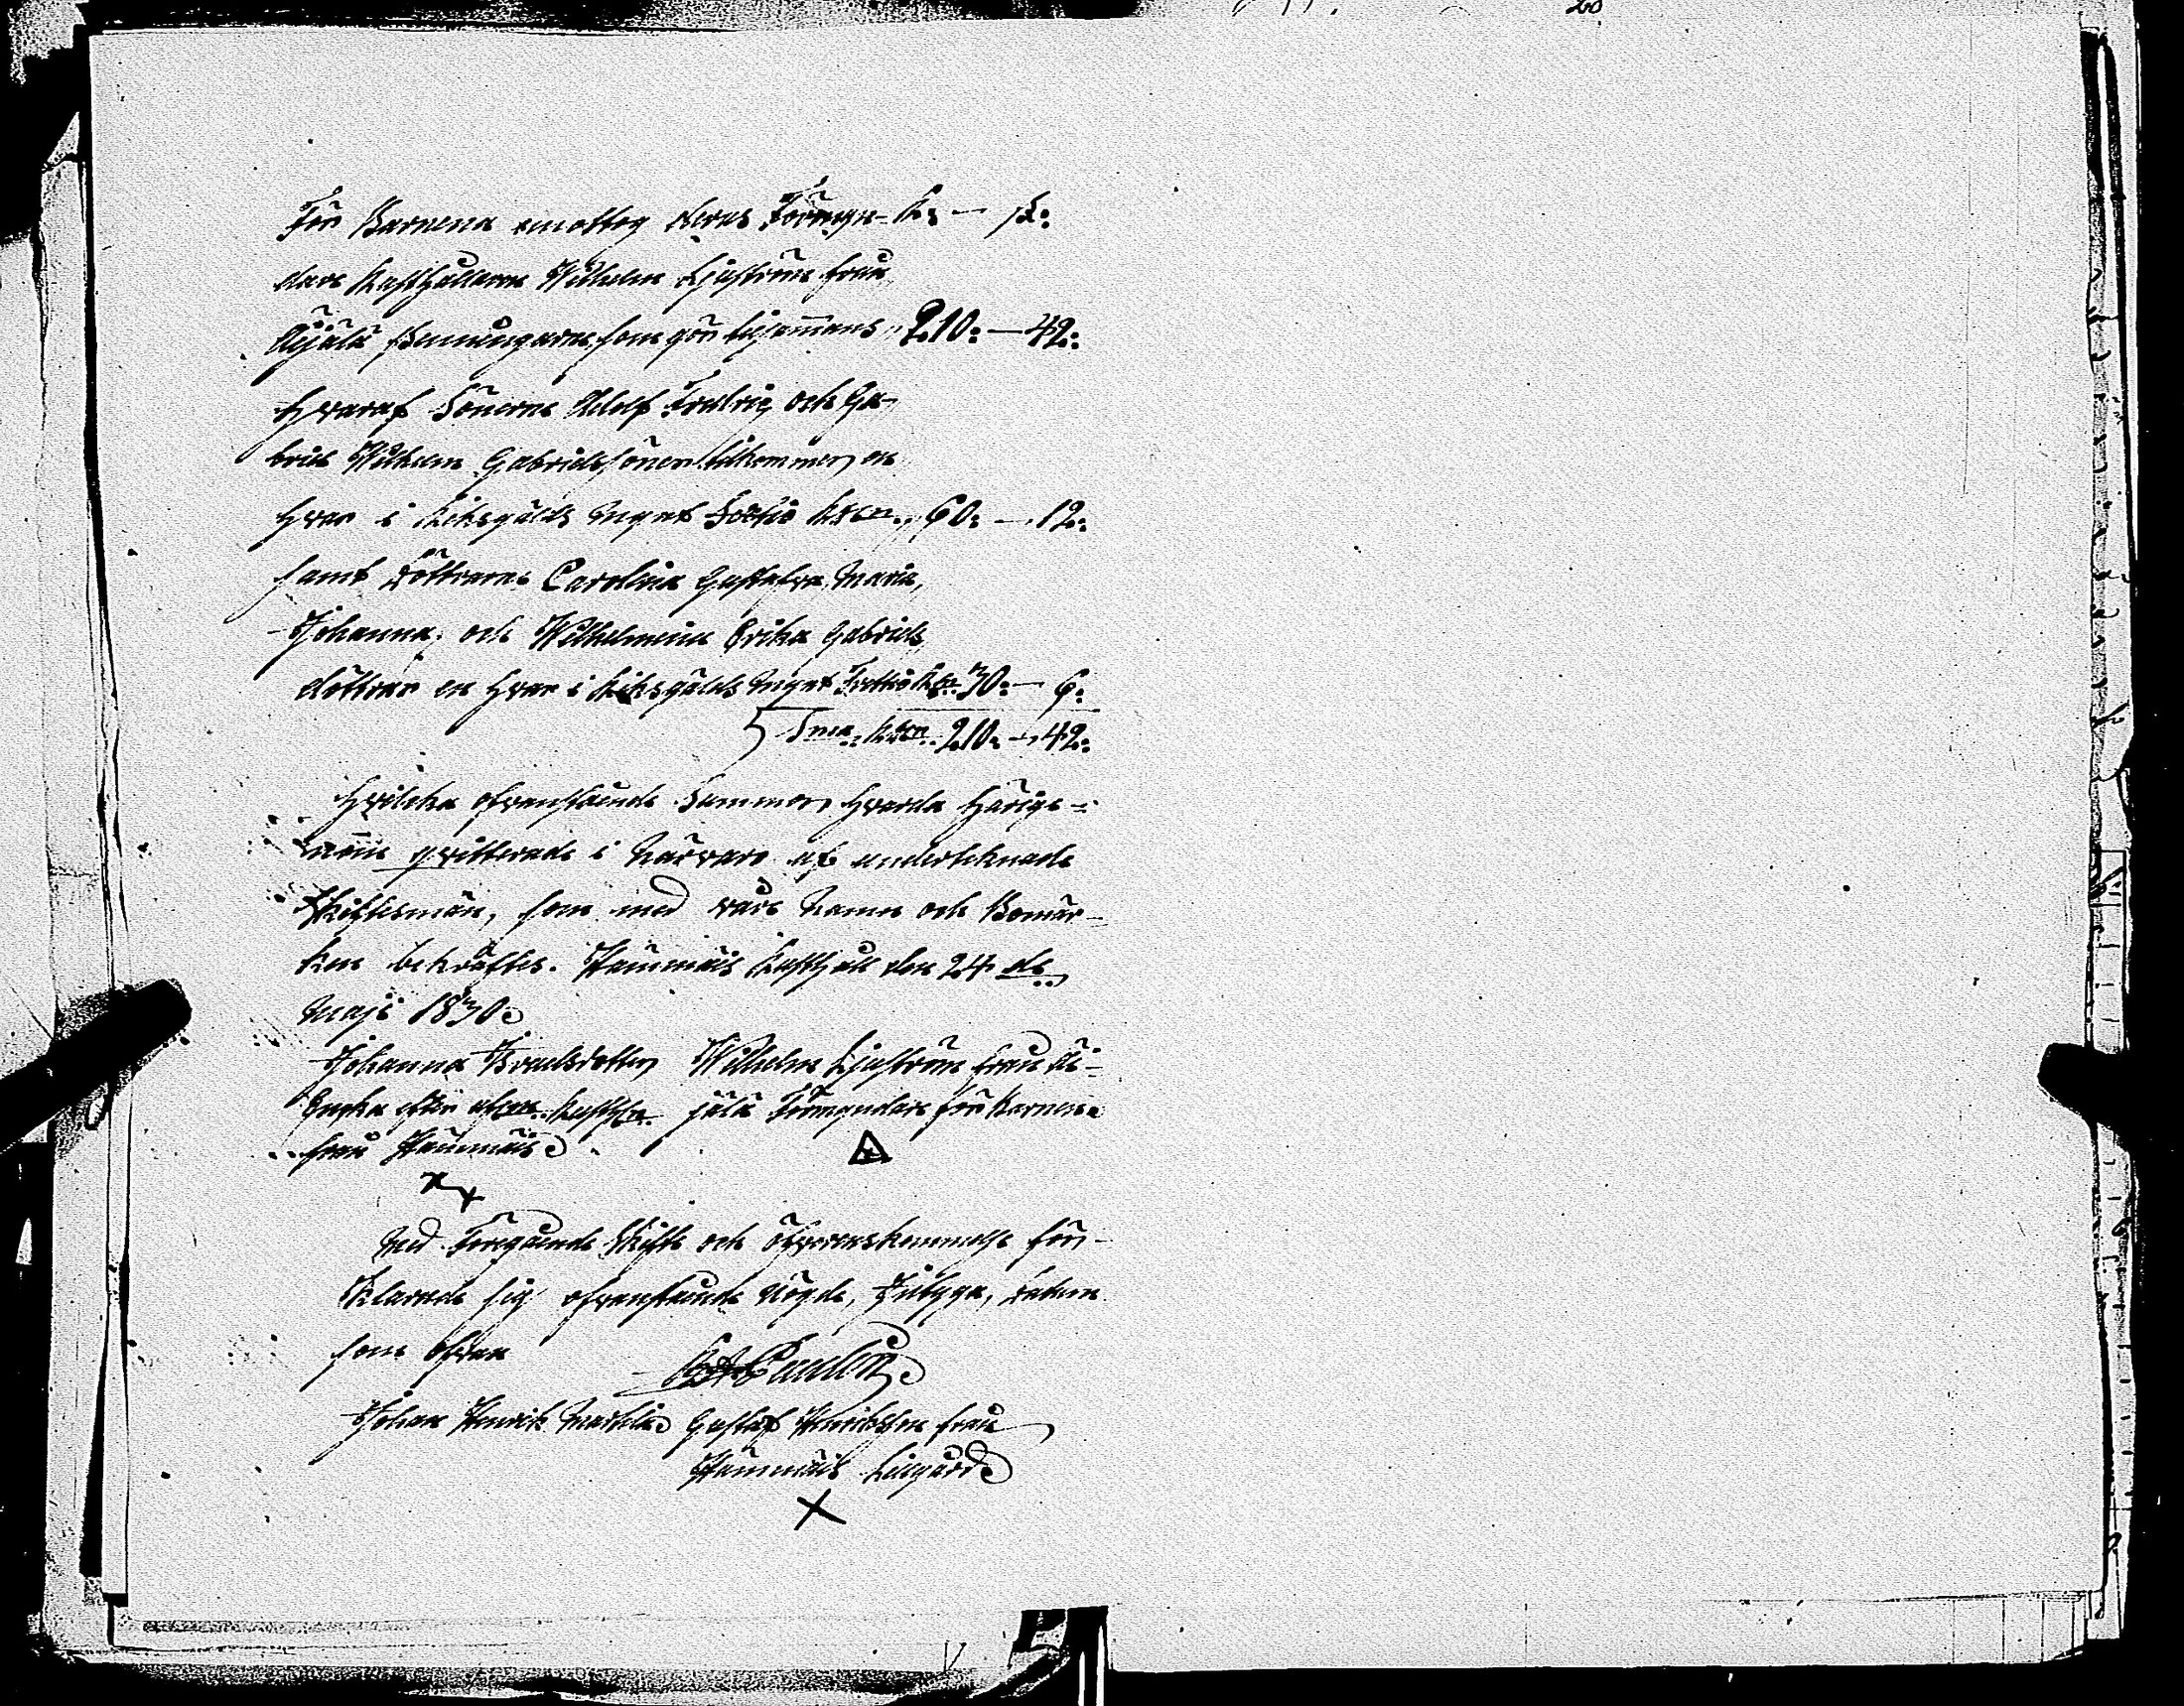 För Barnena emottog deras Förmyn- R: — s:
dare Rusthållaren Wilhelm Ljuström från
Äijälä penningarne, som gör tilsammans " 210: — 42:
Hvaraf Sönerne Adolf Fredric och Ga-
briel Wilhelm Gabrielssöner tilkommer, en
hvar i Riksgälds mynt Sextio Rdr " 60: — 12:
samt Döttrarne Carolina Gustafva, Maria,
Johanna, och Wilhelmina Erika Gabriels
döttrar en hvar i Riksgälds mynt Trettio Rdr 30: — 6:
Sma: Rdr 210: — 42:
Hvilcka ofvanstående Summor hvarda härige-
nom qvitterade i närvaro af undertecknade
Skiftesmän, som med våre Namn och Bomär-
ken bekräftes. Hämmäis Rusthåll den 24 de
Maji 1830.
Johanna Israelsdotter Wilhelm Ljuström från Äi-
Encka efter Rusthn jälä Förmyndare för Barnena
från Hämmäis
Med Föregående Skifte och öfverenskommelse för-
klarade sig ofvanstående Nögde, Intyga, Datum
som ofvan
Johan Henrik Gustaf Henriksson från
Hämmäis Lillgård
X